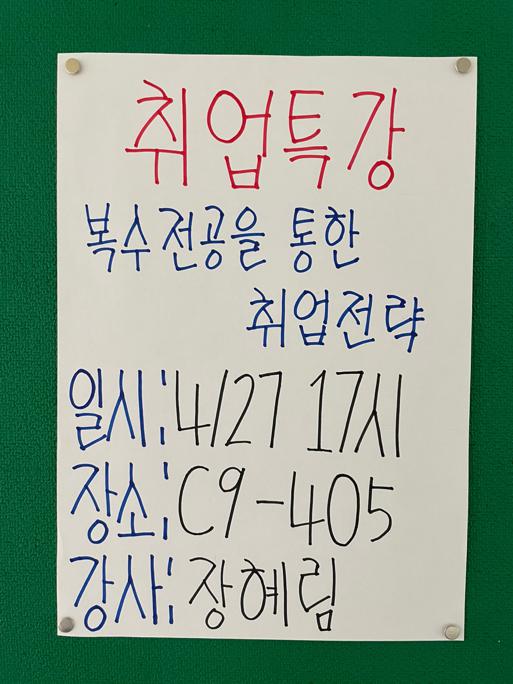 취업특강
복수전공을 통한
취업전략
일시:4/27 17시
장소:C9-405
강사:장혜림